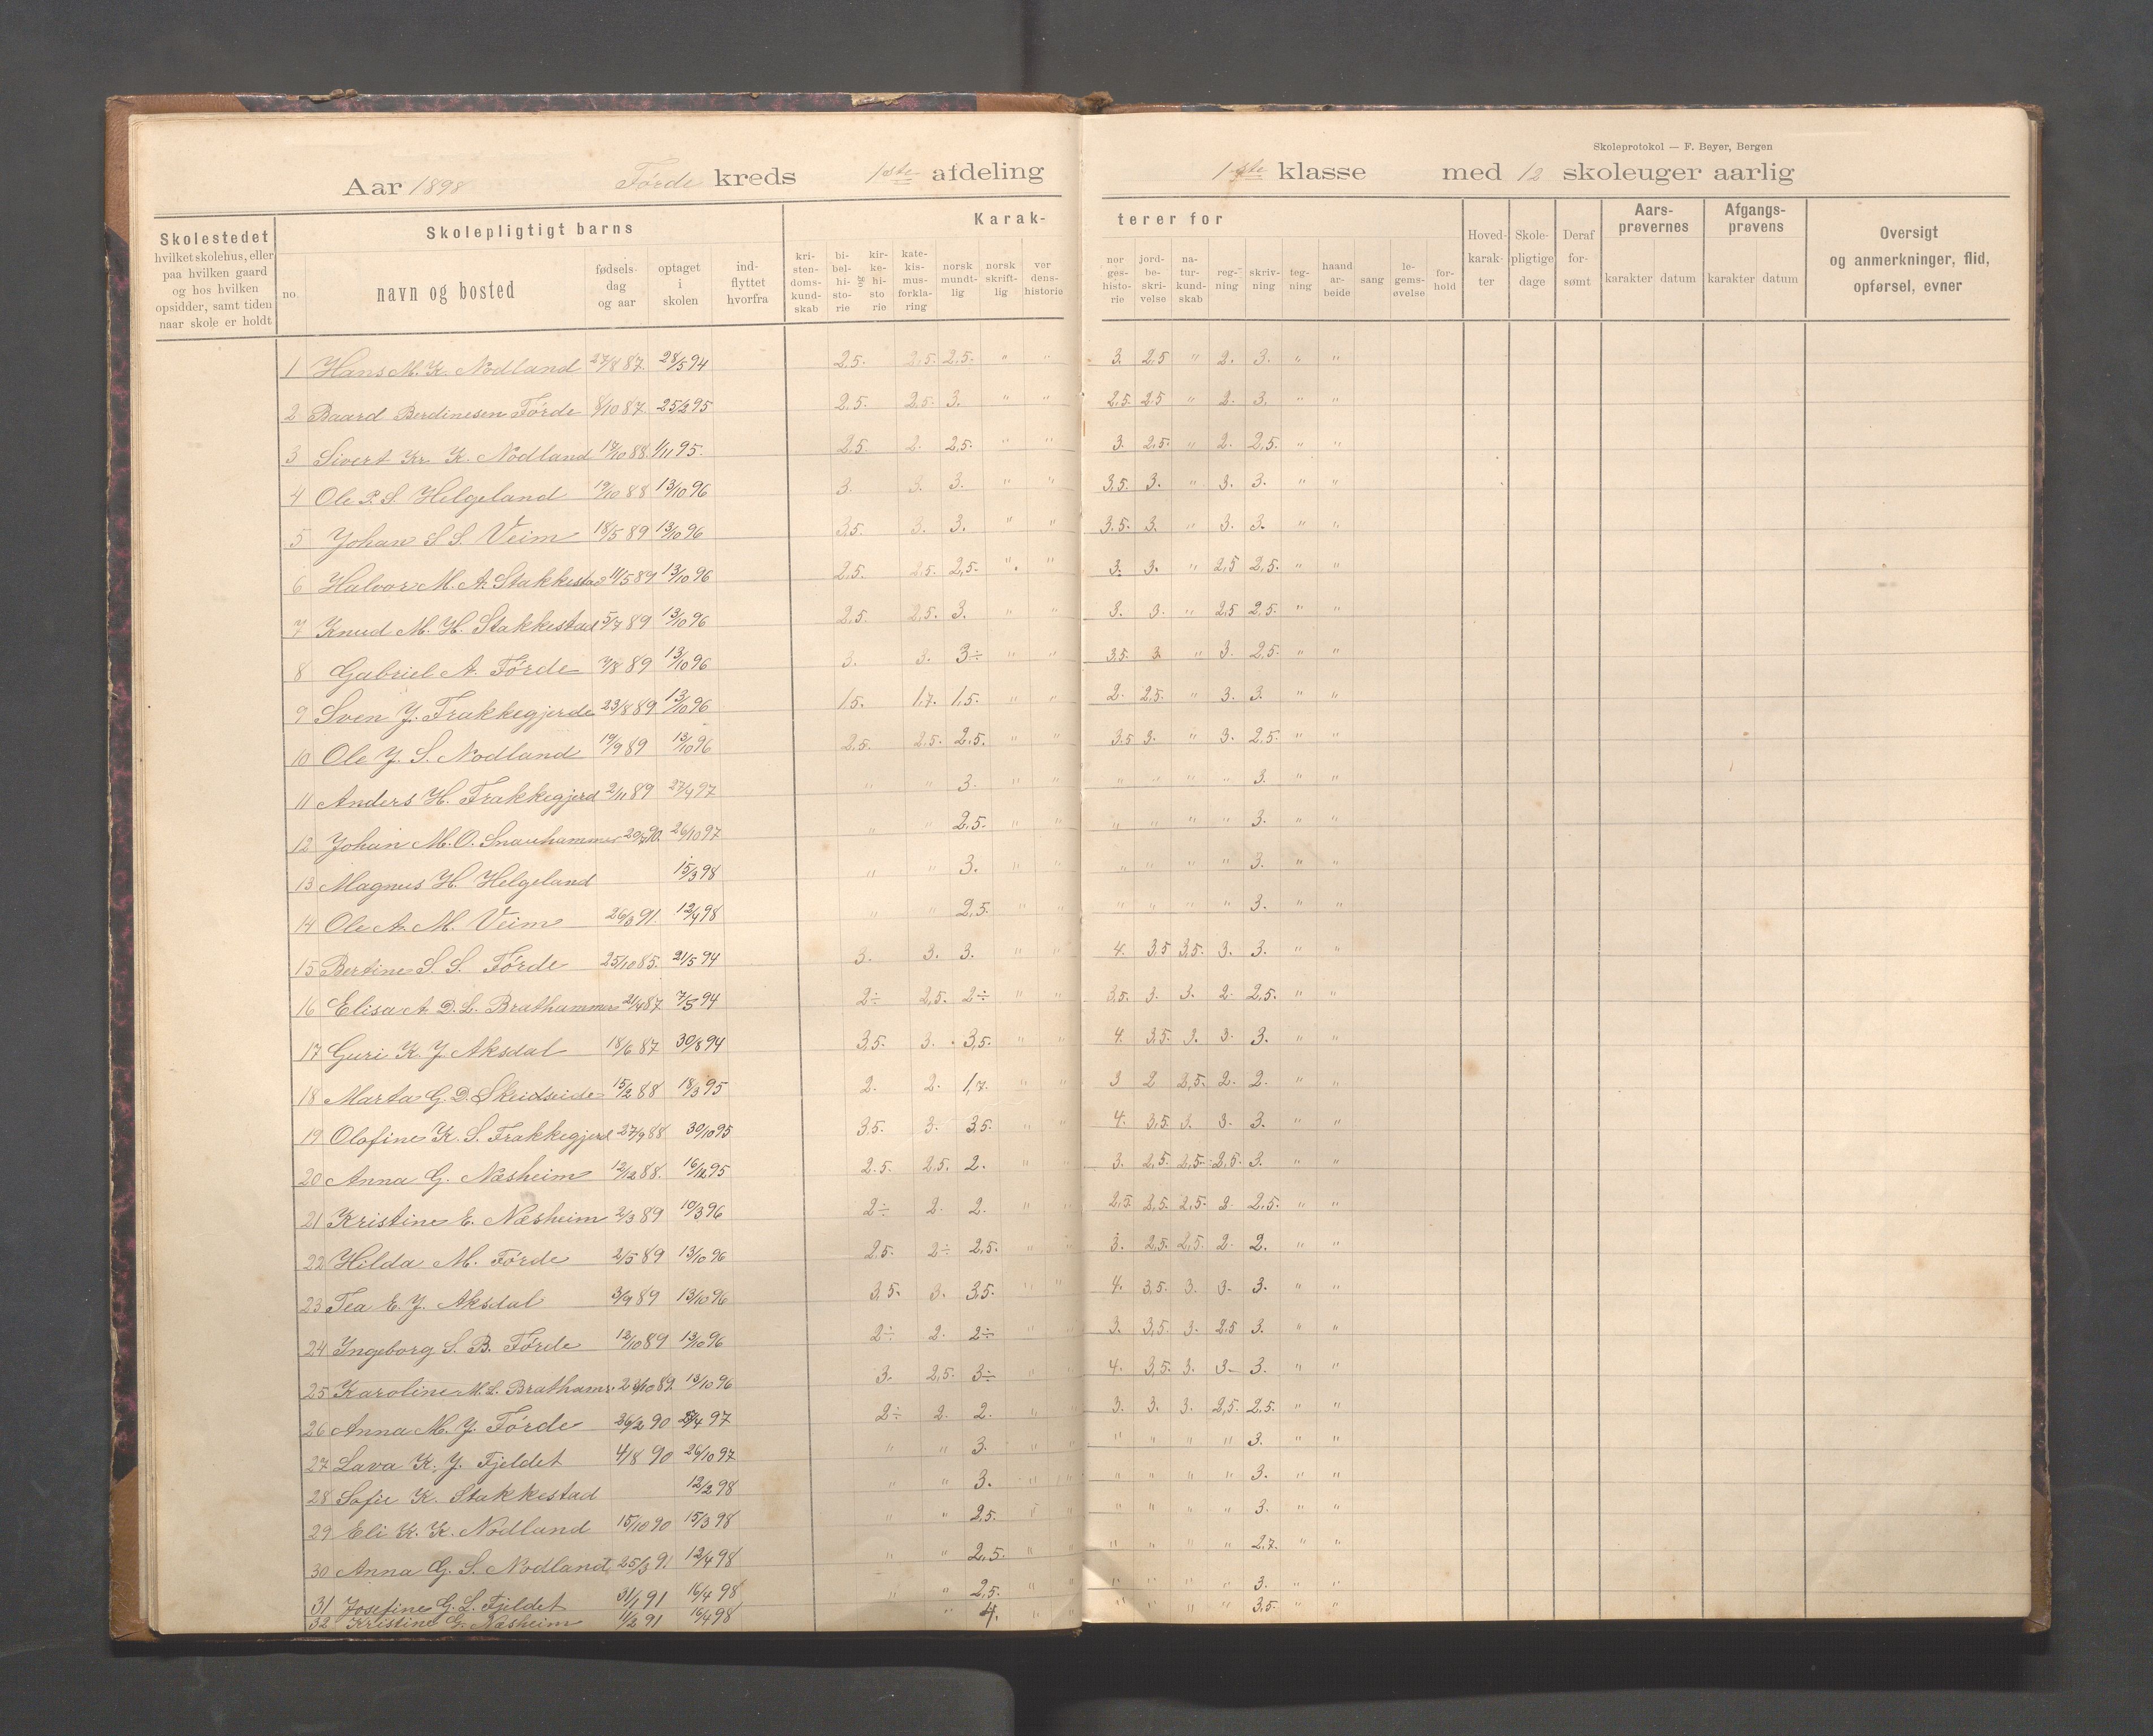 Skoleprotokol — F. Beyer, Bergen
Aar 1898 Førde kreds 1ste afdeling 1ste klasse med 12 skoleuger aarlig
Skolestedet
hvilket skolehus, eller
paa hvilken gaard
og hos hvilken
opsidder, samt tiden
naar skole er holdt
Skolepligtigt barns
no. navn og bosted
fødsels-
dag
og aar
optaget
i
skolen
ind-
flyttet
hvorfra
Karak-
terer for
kri-
sten-
doms-
kund-
skab
bi-
bel-
hi-
sto-
rie
og
kir-
ke-
hi-
sto
rie
kate-
kis-
mus-
forkla-
ring
norsk
mundt-
lig
norsk
skrift-
lig
ver
dens-
historie
nor
ges-
histo-
rie
jord-
be-
skri-
velse
na-
tur-
kund-
skab
reg-
ning
skriv-
ning
teg-
ning
haand
ar-
beide
sang
le-
gems-
øvelse
for-
hold
Hoved-
karak-
ter
Skole-
pligtige
dage
Deraf
for-
sømt
Aars-
prøvernes
karakter datum
Afgangs-
prøvens
karakter datum
Oversigt
og anmerkninger, flid,
opførsel, evner
1 Hans M. K. Nodland 27/8 87. 28/5 94 2.5. 2.5. 2.5. " " 3. 2.5 " 2. 3. " "
2 Baard Berdinesen Førde 8/10 87 25/2 95 2.5. 2.5. 3. " " 2.5. 2.5 " 2. 3. " "
3 Sivert Kr. K. Nodland 17/10 88. 1/11 95. 2.5. 2. 2.5. " " 3. 2.5. " 2. 2.5. " "
4 Ole P. S. Helgeland 19/10 88 13/10 96 3. 3. 3. " " 3.5. 3. " 3. 3. " "
5 Johan S. S. Veim 18/5 89 13/10 96 3.5. 3. 3. " " 3.5. 3. " 3. 3. " "
6 Halvor M. A. Stakkestad 11/5 89 13/10 96 2.5. 2.5. 2.5. " " 3. 3. " 2.5 2.5. " "
7 Knud M. H. Stakkestad 5/7 89 13/10 96 2.5. 2.5. 3. " " 3. 3. " 2.5 2.5. " "
8 Gabriel A. Førde 7/8 89 13/10 96 3. 3. 3÷ " " 3.5. 3. " 3. 2.5. " "
9 Sven J. Frakkegjerde 23/8 89 13/10 96 1.5. 1.7. 1.5. " " 2. 2.5. " 3. 3. " "
10 Ole J. S. Nodland 19/9 89 13/10 96 2.5. 2.5. 2.5. " " 3.5 3. " 3. 2.5. " "
11 Anders H. Frakkegjerd 2/11 89 27/4 97 " " 3. " " " " " " 3. " "
12 Johan M. O. Snauhammer 26/10 97 " " 2.5. " " " " " " 3. " "
13 Magnus H. Helgeland 15/3 98 " " 3. " " " " " " 3. " "
14 Ole A. M. Veim 26/3 91. 12/4 98 " " 2.5. " " " " " " 3. " "
15 Bertine S. S. Førde 25/10 85. 21/5 94 3. 3. 3. " " 4. 3.5 3.5. 3. 3. " "
16 Elisa A. D. L. Brathammer 21/4 87. 7/5 94 2÷ 2.5. 2÷ " " 3.5. 3. 3. 2. 2.5. " "
17 Guri K. J. Aksdal 18/6 87 30/8 94 3.5. 3. 3.5. " " 4. 3.5. 3. 3. 3. " "
18 Marta G. D. Skeidseide 15/2 88 18/3 95 2. 2. 1.7. " " 3 2 2.5. 2. 2. " "
19 Olofine K. S. Frakkegjerd 27/9 88 30/10 95 3.5. 3. 3.5. " " 4. 3.5. 3. 3. 3. " "
20 Anna G. Næsheim 12/12 88. 16/12 95 2.5. 2.5. 2. " " 3. 2.5. 2.5. 2.5. 3. " "
21 Kristine E. Næsheim 2/3 89 10/3 96 2÷ 2. 2. " " 2.5. 2.5. 2.5. 2. 2.5. " "
22 Hilda M. Førde 2/5 89 13/10 96 2.5. 2÷ 2.5. " " 3. 2.5. 2.5. 2. 2. " "
23 Tea E. J. Aksdal 3/9 89 13/10 96 3.5. 3. 3.5. " " 4. 3.5. 3. 3. 3. " "
24 Ingeborg S. B. Førde 12/10 89 13/10 96 2÷ 2. 2÷ " " 3. 3.5. 3. 2.5 3. " "
25 Karoline M. L. Brathamr. 23/10 89. 13/10 96 3. 2.5. 3÷ " " 4. 3.5. 3. 3. 3. " "
26 Anna M. J. Førde 26/2 90 27/4 97 2÷ 2. 2. " " 3. 3. 3. 2.5. 2.5. " "
27 Lava K. J. Fjeldet 4/8 90 26/10 97 " " 3. " " " " " " 3. " "
28 Sofie K. Stakkestad 12/2 98 " " 3. " " " " " " 3. " "
29 Eli K. K. Nodland 15/10 90 15/3 98 " " 2.5. " " " " " " 3. " "
30 Anna G. S. Nodland 25/3 91 12/4 98 " " 2.5. " " " " " " 2.7. " "
31 Josefine G. L. Fjeldet 31/1 91 16/4 98 " " 2.5. " " " " " " 3. " "
32 Kristine G. Næsheim 11/2 91 16/4 98 " 4. " " " " " " 3.5. " "